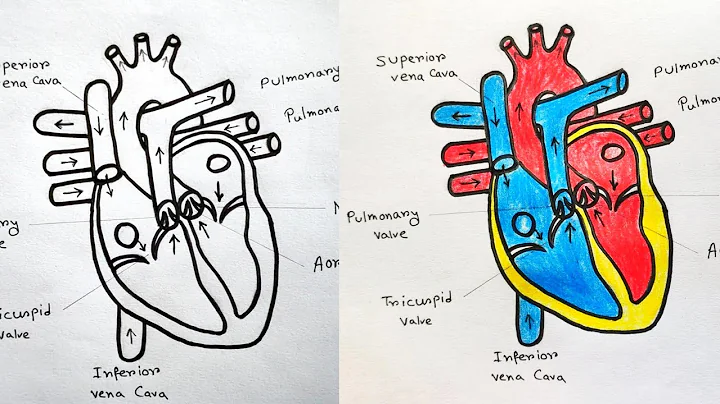 perior
ena Cava
Pulmonary
Pulmona
Aor
icuspid
valve
Inferior
vena Cava
Superior
vena Cava
Pulmona
Pulmo
Pulmonary
valve
A
Tricuspid
valve
Inferior
vena Cava